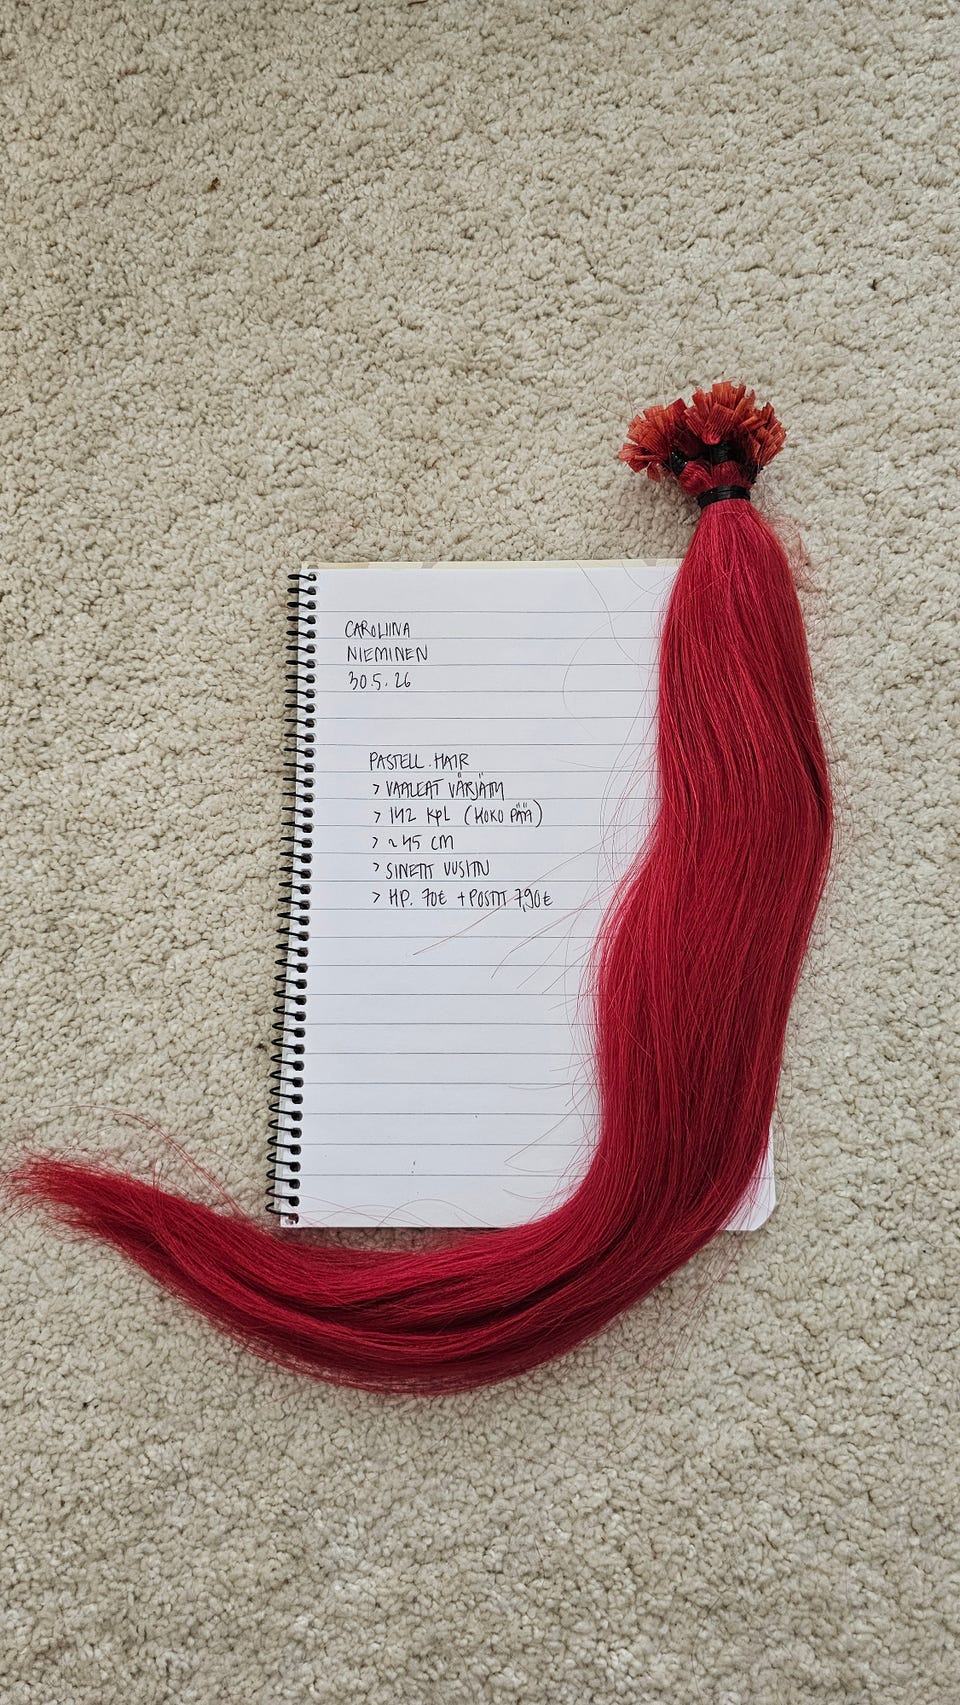 CAROLIINA
NIEMINEN
30.5.26
PASTELL.HAIR
> VAALEAT VÄRJÄTTY
> 142 KPL (KOKO PÄÄ)
> ~45 CM
> SINETIT UUSITTU
> HP. 70€ + POSTIT 7,90€